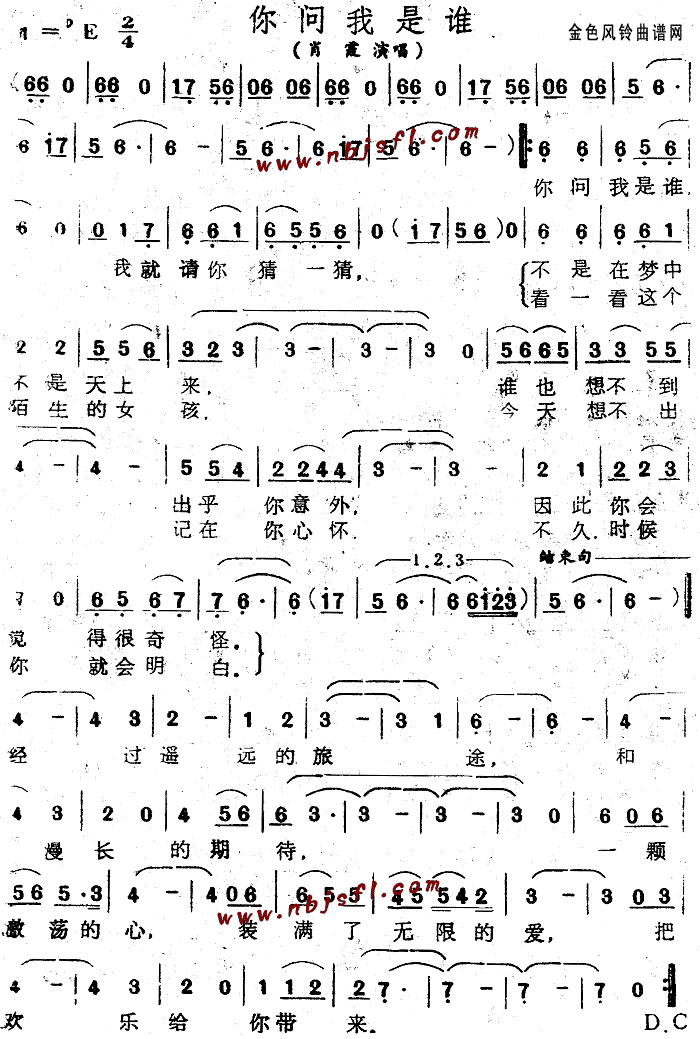 你问我是谁
1=ᵇE 2/4
(肖霞 演唱)
金色风铃曲谱网
(66 0|66 0|17 56|06 06|66 0|66 0|17 56|06 06|5 6·|
6 17|5 6·|6 -|5 6·|6 17|5 6·|6 -)|:6 6|6 5 6|
www.nbjsfl.com
你问我是谁,
6 0|0 1 7|6 6 1|6 5 5 6|0(17|56)0|6 6|6 6 1|
我就请你猜一猜,
不是在梦中
看一看这个
2 2|5 5 6|3 2 3|3 -|3 -|3 0|56 65|33 55|
不是天上来,谁也想不到
陌生的女孩,今天想不出
4 -|4 -|5 5 4|22 44|3 -|3 -|2 1|2 2 3|
出乎你意外,因此你会
记在你心怀.不久.时候
1.2.3
结束句
7 0|6 5 6 7|7 6·|6(17|5 6·|6 6123|5 6·|6 -)||
觉得很奇怪.
你就会明白.
4 -|4 3|2 -|1 2|3 3 1|6 -|6 -|4 -|
经过遥远的旅途,和
4 3|2 0|4 56|6 3·|3 -|3 -|3 0|6 0 6|
漫长的期待,一颗
56 5·3|4 -|4 0 6|6 5 5|45 542|3 -|3 0 3|
www.nbjsfl.com
激荡的心,装满了无限的爱,把
4 -|4 3|2 0|1 12|7 6·|7 -|7 -|7 0:|
欢乐给你带来.
D.C